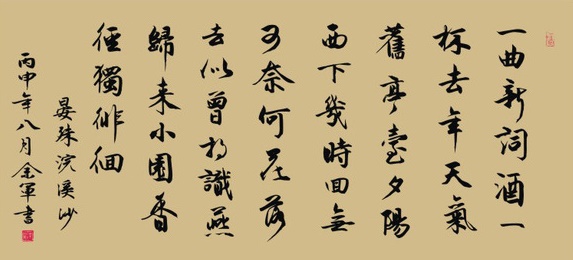 一曲新詞酒一
杯去年天氣
舊亭臺夕陽
西下幾時回無
可奈何花落
去似曾相識燕
歸来小園香
徑獨徘徊
晏殊浣溪沙
丙申年八月軍書